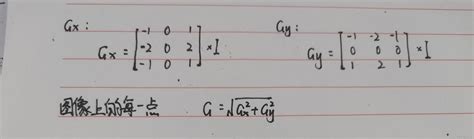 Gx: Gy:
Gx = [-1 0 1; -2 0 2; -1 0 1] × I Gy = [-1 -2 -1; 0 0 0; 1 2 1] × I
图像上的每一点 G = √Gx²+Gy²